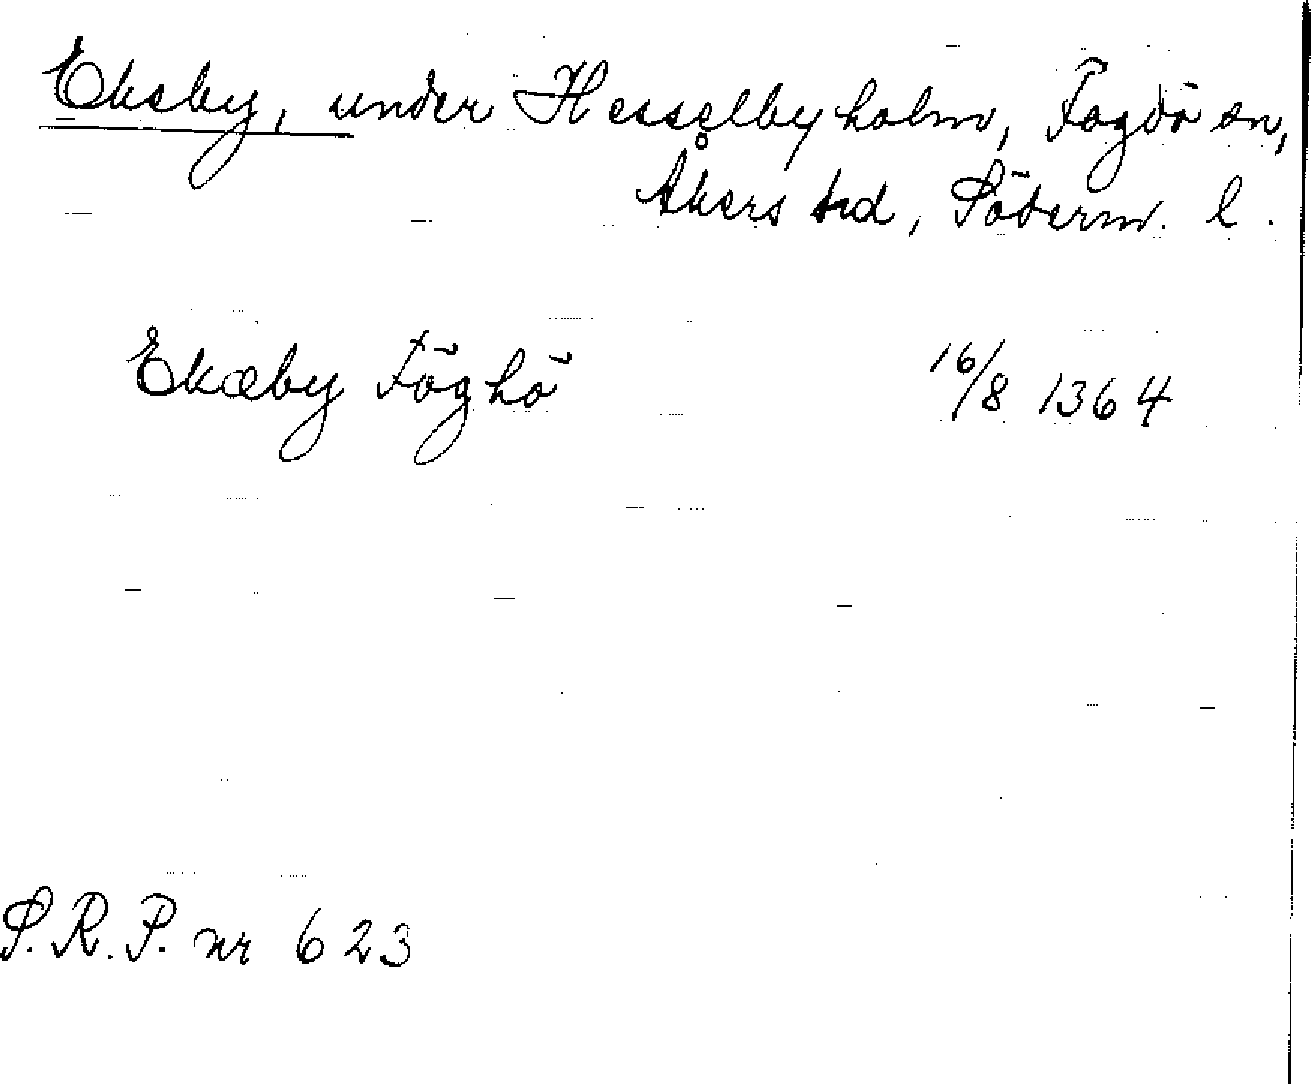 Eksby, under Hesselbyholm, Fogdö sn,
Åkers hd, Söderm. l.
Ekæby Föghö 16/8 1364
S.R.P. nr 623